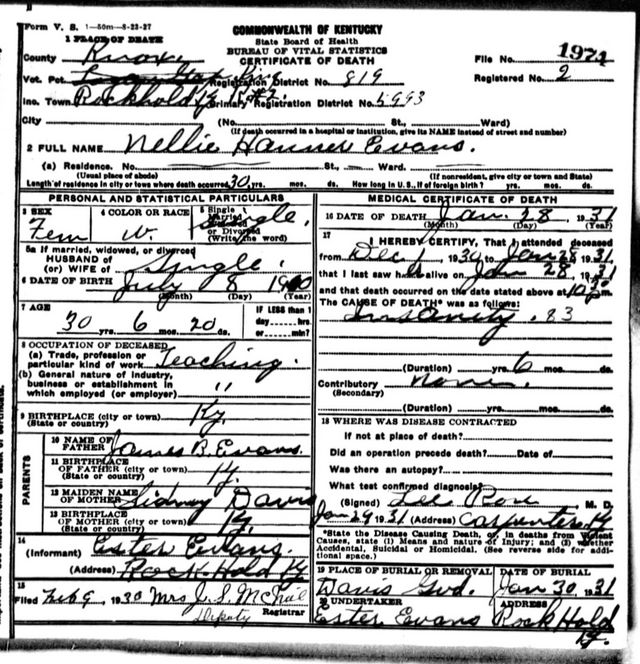 Form V. S. 1—50m—8-23-27
COMMONWEALTH OF KENTUCKY
State Board of Health
BUREAU OF VITAL STATISTICS
CERTIFICATE OF DEATH
1 PLACE OF DEATH
County Knox
File No. 1971
Vot. Pct. Registration District No. 819
Registered No. 2
Inc. Town Rockhold Ky Primary Registration District No. 5993
City (No. St., Ward)
(If death occurred in a hospital or institution, give its NAME instead of street and number)
2 FULL NAME Nellie Hanner Evans.
(a) Residence. No. St., Ward.
(Usual place of abode) (If nonresident, give city or town and State)
Length of residence in city or town where death occurred 30 yrs. mos. ds. How long in U. S., if of foreign birth? yrs. mos. ds.
PERSONAL AND STATISTICAL PARTICULARS
3 SEX Fem
4 COLOR OR RACE W.
5 Single Married or Divorced (Write the word) Single.
5a If married, widowed, or divorced
HUSBAND of
(or) WIFE of Single.
6 DATE OF BIRTH July 8 1900
(Month) (Day) (Year)
7 AGE IF LESS than 1
30 yrs. 6 mos. 20 ds. day----hrs. or----min.?
8 OCCUPATION OF DECEASED
(a) Trade, profession or
particular kind of work Teaching.
(b) General nature of Industry,
business or establishment in
which employed (or employer) "
9 BIRTHPLACE (city or town)
(State or country) Ky.
PARENTS
10 NAME OF
FATHER James B. Evans.
11 BIRTHPLACE
OF FATHER (city or town)
(State or country) Ky.
12 MAIDEN NAME
OF MOTHER Sidney Davis
13 BIRTHPLACE
OF MOTHER (city or town)
(State or country) Ky.
14
(Informant) Ester Evans.
(Address) Rock Hold Ky
15
Filed Feb 9, 1930 Mrs J. S. McNeil
Deputy Registrar
MEDICAL CERTIFICATE OF DEATH
16 DATE OF DEATH Jan. 28 1931
(Month) (Day) (Year)
17
I HEREBY CERTIFY, That I attended deceased
from Dec 1, 1930 to Jan 28 1931
that I last saw h alive on Jan 28 1931
and that death occurred on the date stated above at 10 m.
The CAUSE OF DEATH* was as follows:
Insanity. 83
(Duration) yrs. 6 mos. ds.
Contributory None.
(Secondary)
(Duration) yrs. mos. ds.
18 WHERE WAS DISEASE CONTRACTED
If not at place of death?
Did an operation precede death? Date of
Was there an autopsy?
What test confirmed diagnosis?
(Signed) Lee Rose M. D.
Jan 29 1931 (Address) Carpenter, Ky
*State the Disease Causing Death, or, in deaths from Violent
Causes, state (1) Means and nature of Injury; and (2) whether
Accidental, Suicidal or Homicidal. (See reverse side for addi-
tional space.)
19 PLACE OF BURIAL OR REMOVAL DATE OF BURIAL
Davis Gvd. Jan 30 1931
20 UNDERTAKER ADDRESS
Ester Evans Rock Hold
Ky.